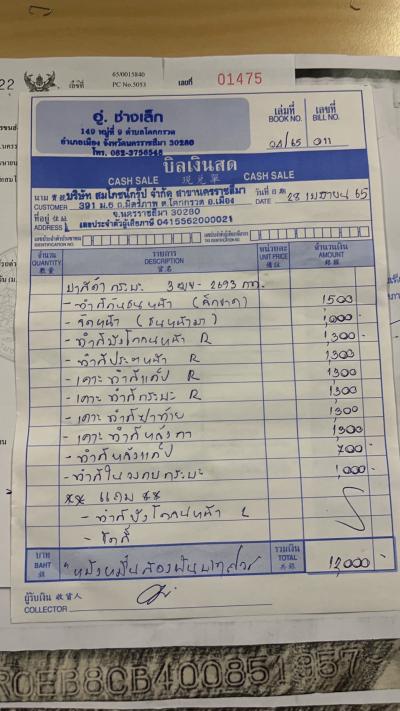 22
65/0015840
เลขที่
PC No.5053
เลขที่ 01475
อู่. ช่างเล็ก
149 หมู่ที่ 9 ตำบลโคกกรวด
อำเภอเมือง จังหวัดนครราชสีมา 30280
โทร. 062-3756545
เล่มที่
BOOK NO.
เลขที่
BILL NO.
04/65 011
บิลเงินสด
CASH SALE 現兌單 CASH SALE
นาม
CUSTOMER
บริษัท สมโภชน์กรุ๊ป จำกัด สาขานครราชสีมา
391 ม.6 ถ.มิตรภาพ ต.โคกกรวด อ.เมือง
วันที่
DATE
28 เมษายน 65
ที่อยู่
ADDRESS
จ.นครราชสีมา 30280
เลขประจำตัวผู้เสียภาษี 0415562000021
จำนวน
QUANTITY
รายการ
DESCRIPTION
หน่วยละ
UNIT PRICE
จำนวนเงิน
AMOUNT
ทำสีกันชนหน้า 1500
1,000 -
- ทำสีบังโคลนหน้า R 1,300 -
- ทำสีประตูหน้า R 1300
- เคาะ ทำสีแค็ป R 1300
- เคาะ ทำสีกระบะ R 1300
- เคาะ ทำสีฝาท้าย 1300
- เคาะ ทำสีหลังคา 1300
- ทำสีหลังแค็ป 700 -
- ทำสีในขอบกระบะ 1,000 -
** แถม **
- ทำสีบังโคลนหน้า L
- ขัดสี
บาท
BAHT
รวมเงิน
TOTAL
12,000 -
ผู้รับเงิน 收貨人
COLLECTOR
ROEB8CB400851957